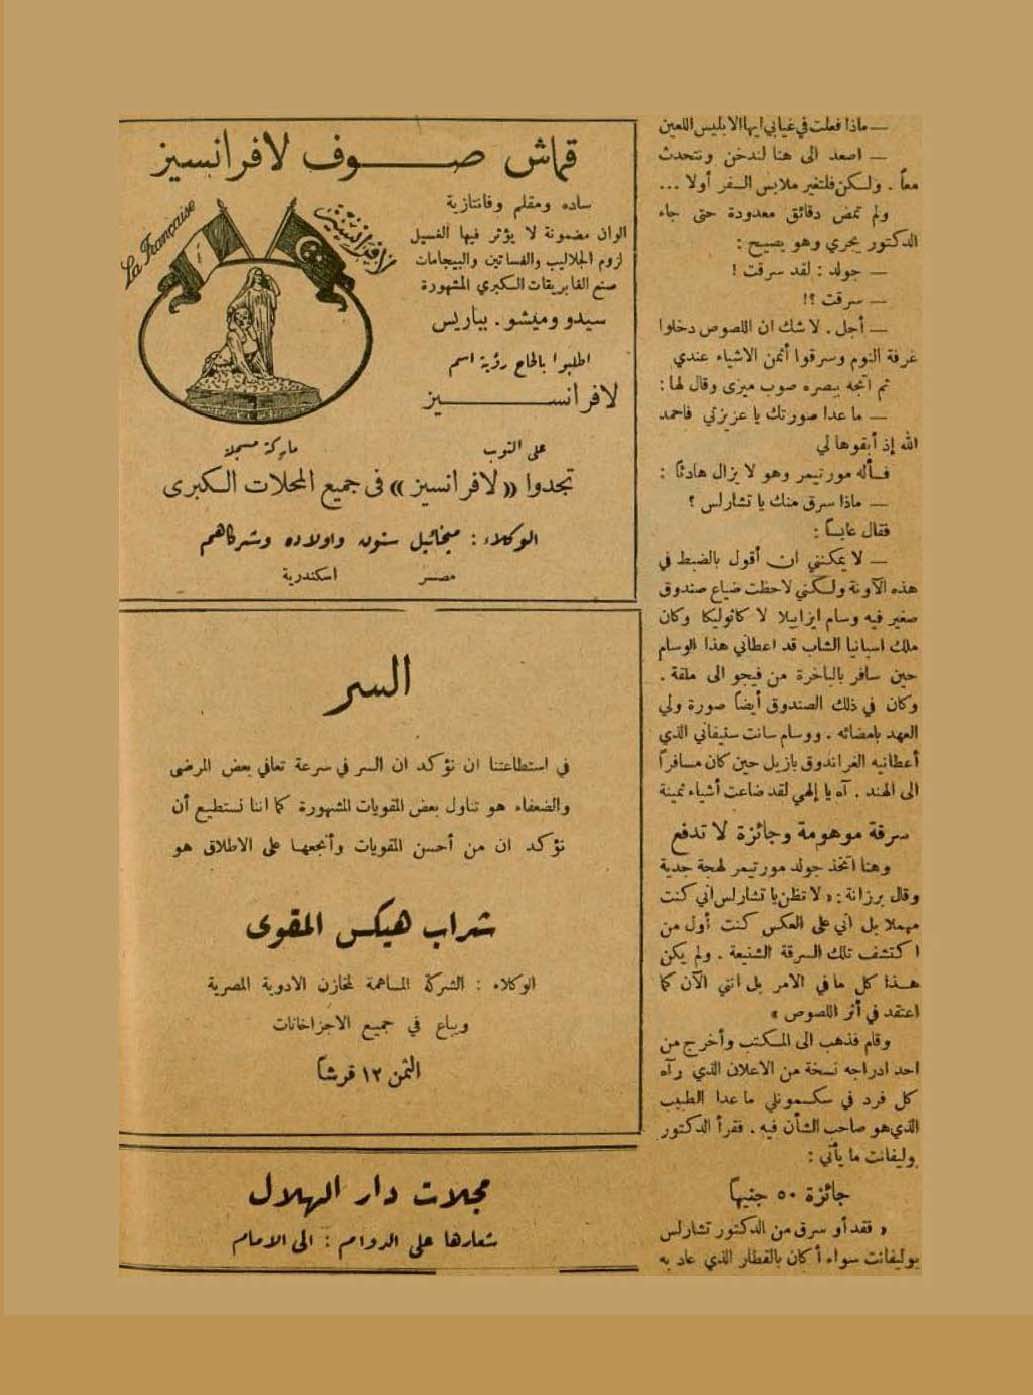 — ماذا فعلت في غيابي ايها الابليس اللعين
— اصعد الى هنا لندخن ونتحدث
معاً . ولكن فلتغير ملابس السفر أولا ...
ولم تمض دقائق معدودة حتى جاء
الدكتور يجري وهو يصيح :
— جولد : لقد سرقت !
— سرقت ؟!
— أجل . لا شك ان اللصوص دخلوا
غرفة النوم وسرقوا أثمن الاشياء عندي
ثم اتجه ببصره صوب ميزى وقال لها :
— ما عدا صورتك يا عزيزتي فاحمد
الله إذ أبقوها لي
فسأله مورتيمر وهو لا يزال هادئاً :
— ماذا سرق منك يا تشارلس ؟
فقال عابساً :
— لا يمكنني ان أقول بالضبط في
هذه الآونة ولكني لاحظت ضياع صندوق
صغير فيه وسام ايزابيلا لا كاثوليكا وكان
ملك اسبانيا الشاب قد اعطاني هذا الوسام
حين سافر بالباخرة من فيجو الى ملقة .
وكان في ذلك الصندوق أيضاً صورة ولي
العهد بامضائه . ووسام سانت ستيفاني الذي
أعطانيه الغراندوق بازيل حين كان مسافراً
الى الهند . آه يا إلهي لقد ضاعت أشياء ثمينة
سرقة موهومة وجائزة لا تدفع
وهنا اتخذ جولد مورتيمر لهجة جدية
وقال برزانة : « لا تظن يا تشارلس اني كنت
مهملا بل اني على العكس كنت أول من
اكتشف تلك السرقة الشنيعة . ولم يكن
هذا كل ما في الامر بل انني الآن كما
اعتقد في أثر اللصوص »
وقام فذهب الى المكتب وأخرج من
احد ادراجه نسخة من الاعلان الذي رآه
كل فرد في سكسمونلي ما عدا الطبيب
الذي هو صاحب الشأن فيه . فقرأ الدكتور
بوليفانت ما يأتي :
جائزة ٥٠ جنيهاً
« فقد أو سرق من الدكتور تشارلس
بوليفانت سواء أكان بالقطار الذي عاد به
قماش صوف لافرانسيز
ساده ومقلم وفانتازية
الوان مضمونة لا يؤثر فيها الغسيل
لزوم الجلاليب والفساتين والبيجامات
صنع الفابريقات الكبرى المشهورة
سيدو وميشو . بباريس
اطلبوا بالحاح رؤية اسم
لافرانسيز
على التوب
La Française
لافرانسيز
ماركة مسجلة
تجدوا «لافرانسيز» في جميع المحلات الكبرى
الوكلاء : ميخائيل ستون واولاده وشركاهم
مصر اسكندرية
السر
في استطاعتنا ان نؤكد ان السر في سرعة تعافي بعض المرضى
والضعفاء هو تناول بعض المقويات المشهورة كما اننا نستطيع أن
نؤكد ان من أحسن المقويات وأنجعها على الاطلاق هو
شراب هيكس المقوى
الوكلاء : الشركة المساهمة لمخازن الادوية المصرية
ويباع في جميع الاجزاخانات
الثمن ١٢ قرشاً
مجلات دار الهلال
شعارها على الدوام : الى الامام